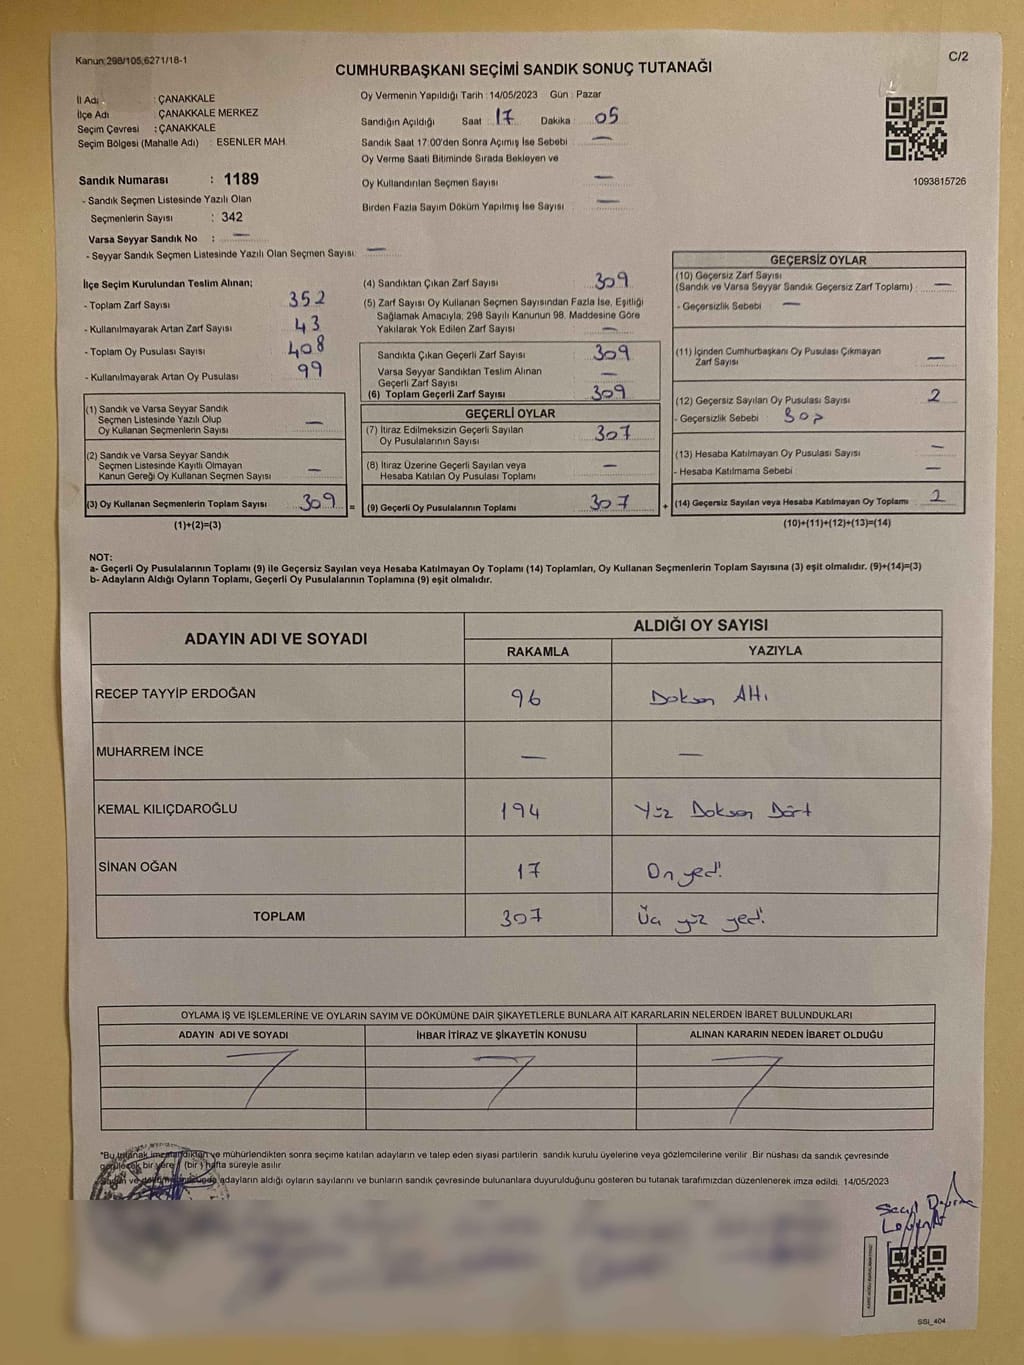 Kanun:298/105,6271/18-1
C/2
CUMHURBAŞKANI SEÇİMİ SANDIK SONUÇ TUTANAĞI
İl Adı : ÇANAKKALE
İlçe Adı : ÇANAKKALE MERKEZ
Seçim Çevresi : ÇANAKKALE
Seçim Bölgesi (Mahalle Adı) : ESENLER MAH.
Sandık Numarası : 1189
- Sandık Seçmen Listesinde Yazılı Olan
Seçmenlerin Sayısı : 342
Varsa Seyyar Sandık No : —
- Seyyar Sandık Seçmen Listesinde Yazılı Olan Seçmen Sayısı: —
Oy Vermenin Yapıldığı Tarih : 14/05/2023 Gün : Pazar
Sandığın Açıldığı Saat : 17 Dakika : 05
Sandık Saat 17:00'den Sonra Açımış İse Sebebi : —
Oy Verme Saati Bitiminde Sırada Bekleyen ve
Oy Kullandırılan Seçmen Sayısı : —
Birden Fazla Sayım Döküm Yapılmış İse Sayısı : —
1093815726
İlçe Seçim Kurulundan Teslim Alınan;
- Toplam Zarf Sayısı : 352
- Kullanılmayarak Artan Zarf Sayısı : 43
- Toplam Oy Pusulası Sayısı : 408
- Kullanılmayarak Artan Oy Pusulası : 99
(1) Sandık ve Varsa Seyyar Sandık
Seçmen Listesinde Yazılı Olup
Oy Kullanan Seçmenlerin Sayısı : —
(2) Sandık ve Varsa Seyyar Sandık
Seçmen Listesinde Kayıtlı Olmayan
Kanun Gereği Oy Kullanan Seçmen Sayısı : —
(3) Oy Kullanan Seçmenlerin Toplam Sayısı : 309 =
(1)+(2)=(3)
(4) Sandıktan Çıkan Zarf Sayısı : 309
(5) Zarf Sayısı Oy Kullanan Seçmen Sayısından Fazla İse, Eşitliği
Sağlamak Amacıyla, 298 Sayılı Kanunun 98. Maddesine Göre
Yakılarak Yok Edilen Zarf Sayısı : —
Sandıkta Çıkan Geçerli Zarf Sayısı : 309
Varsa Seyyar Sandıktan Teslim Alınan
Geçerli Zarf Sayısı : —
(6) Toplam Geçerli Zarf Sayısı : 309
GEÇERLİ OYLAR
(7) İtiraz Edilmeksizin Geçerli Sayılan
Oy Pusulalarının Sayısı : 307
(8) İtiraz Üzerine Geçerli Sayılan veya
Hesaba Katılan Oy Pusulası Toplamı : —
(9) Geçerli Oy Pusulalarının Toplamı : 307 +
GEÇERSİZ OYLAR
(10) Geçersiz Zarf Sayısı
(Sandık ve Varsa Seyyar Sandık Geçersiz Zarf Toplamı) : —
- Geçersizlik Sebebi : —
(11) İçinden Cumhurbaşkanı Oy Pusulası Çıkmayan
Zarf Sayısı : —
(12) Geçersiz Sayılan Oy Pusulası Sayısı : 2
- Geçersizlik Sebebi :
(13) Hesaba Katılmayan Oy Pusulası Sayısı : —
- Hesaba Katılmama Sebebi : —
(14) Geçersiz Sayılan veya Hesaba Katılmayan Oy Toplamı : 2
(10)+(11)+(12)+(13)=(14)
NOT:
a- Geçerli Oy Pusulalarının Toplamı (9) ile Geçersiz Sayılan veya Hesaba Katılmayan Oy Toplamı (14) Toplamları, Oy Kullanan Seçmenlerin Toplam Sayısına (3) eşit olmalıdır. (9)+(14)=(3)
b- Adayların Aldığı Oyların Toplamı, Geçerli Oy Pusulalarının Toplamına (9) eşit olmalıdır.
ADAYIN ADI VE SOYADI
ALDIĞI OY SAYISI
RAKAMLA YAZIYLA
RECEP TAYYİP ERDOĞAN 96 Doksan Altı
MUHARREM İNCE — —
KEMAL KILIÇDAROĞLU 194 Yüz Doksan Dört
SİNAN OĞAN 17 On yedi
TOPLAM 307 Üç yüz yedi
OYLAMA İŞ VE İŞLEMLERİNE VE OYLARIN SAYIM VE DÖKÜMÜNE DAİR ŞİKAYETLERLE BUNLARA AİT KARARLARIN NELERDEN İBARET BULUNDUKLARI
ADAYIN ADI VE SOYADI İHBAR İTİRAZ VE ŞİKAYETİN KONUSU ALINAN KARARIN NEDEN İBARET OLDUĞU
*Bu tutanak imzalandıktan ve mühürlendikten sonra seçime katılan adayların ve talep eden siyasi partilerin sandık kurulu üyelerine veya gözlemcilerine verilir. Bir nüshası da sandık çevresinde
görülecek bir yere (bir) hafta süreyle asılır
adayların aldığı oyların sayılarını ve bunların sandık çevresinde bulunanlara duyurulduğunu gösteren bu tutanak tarafımızdan düzenlenerek imza edildi. 14/05/2023
SSI_404